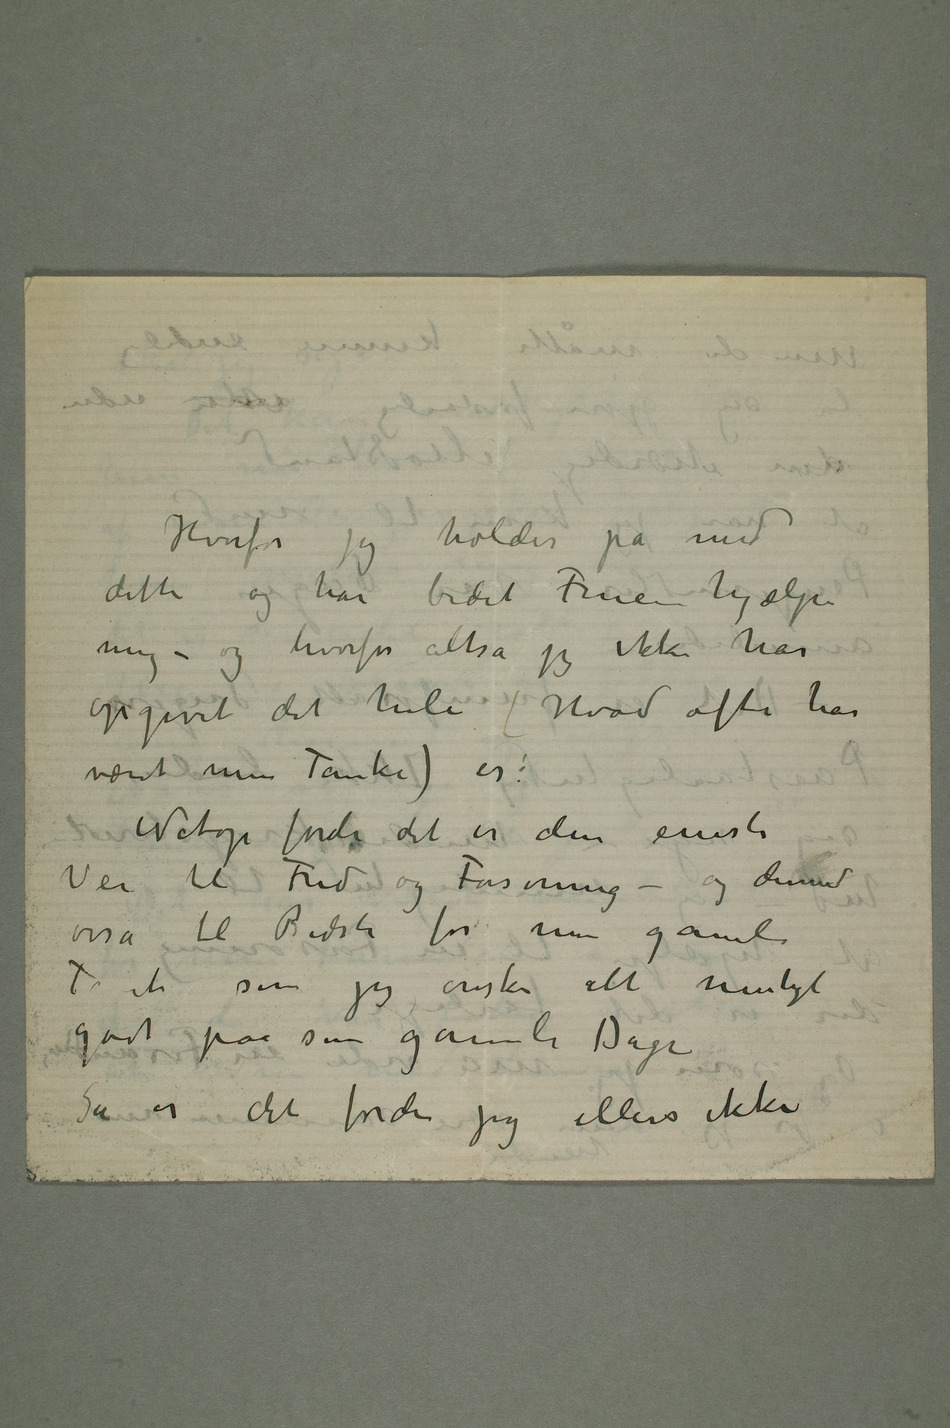 Hvorfor jeg holder på med
dette og har bedet Fruen hjælpe
mig – og hvorfor altså jeg ikke har
opgivet det hele (Hvad ofte har
været min Tanke) er:
Netop fordi det er den eneste
Vei til Fred og Forsoning – og dermed
også til Bedste for min gamle
Tante som jeg ønsker alt muligt
godt paa sine gamle Dage
Så er det fordi jeg ellers ikke